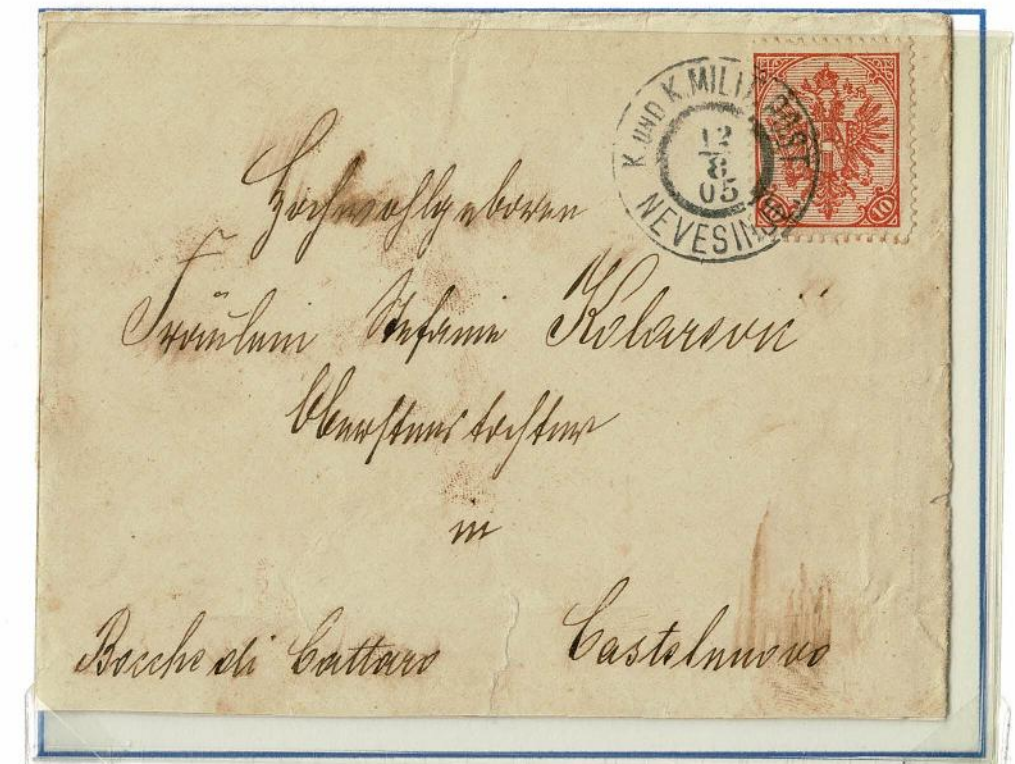 K. UND K. MILIT. POST
12
8
05
NEVESINJE
10
Hochwohlgeboren
Fräulein Stefanie
Oberstens tochter
in
Bocche di Cattaro
Castelnuovo